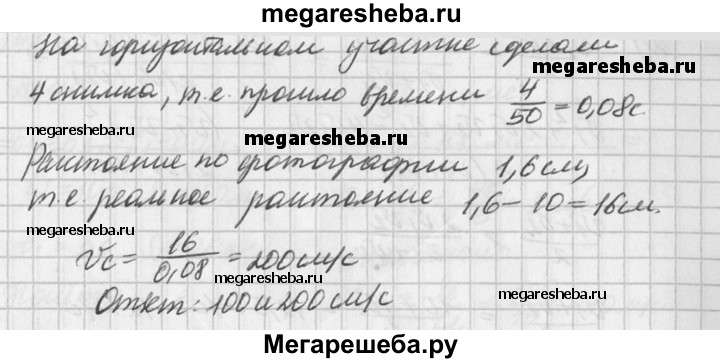 megaresheba.ru
На горизонтальном участке сделали
megaresheba.ru
4 снимка, т.е. прошло времени 4/50 = 0,08с.
megaresheba.ru
megaresheba.ru
Расстояние по фотографии 1,6см,
т.е. реальное расстояние 1,6-10=16см.
megaresheba.ru
Vс= 16/0,08 = 200см/с
megaresheba.ru
Ответ: 100 и 200см/с
megaresheba.ru
Мегарешеба.ру